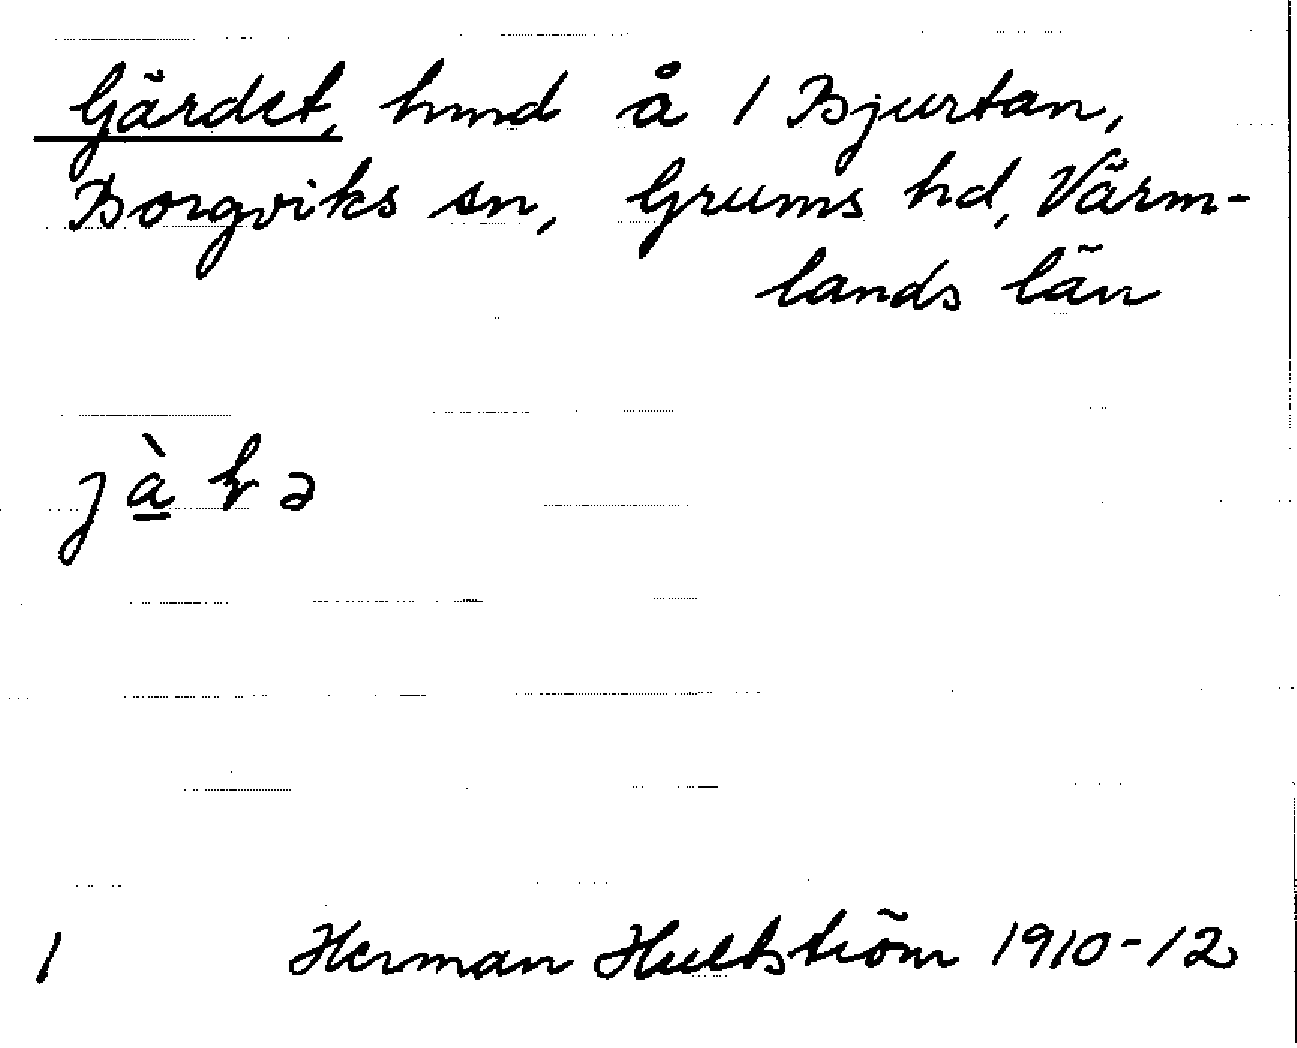 Gärdet, hmd å 1 Bjurtan,
Borgviks sn, Grums hd, Värm-
lands län
1 Herman Hultström 1910-12